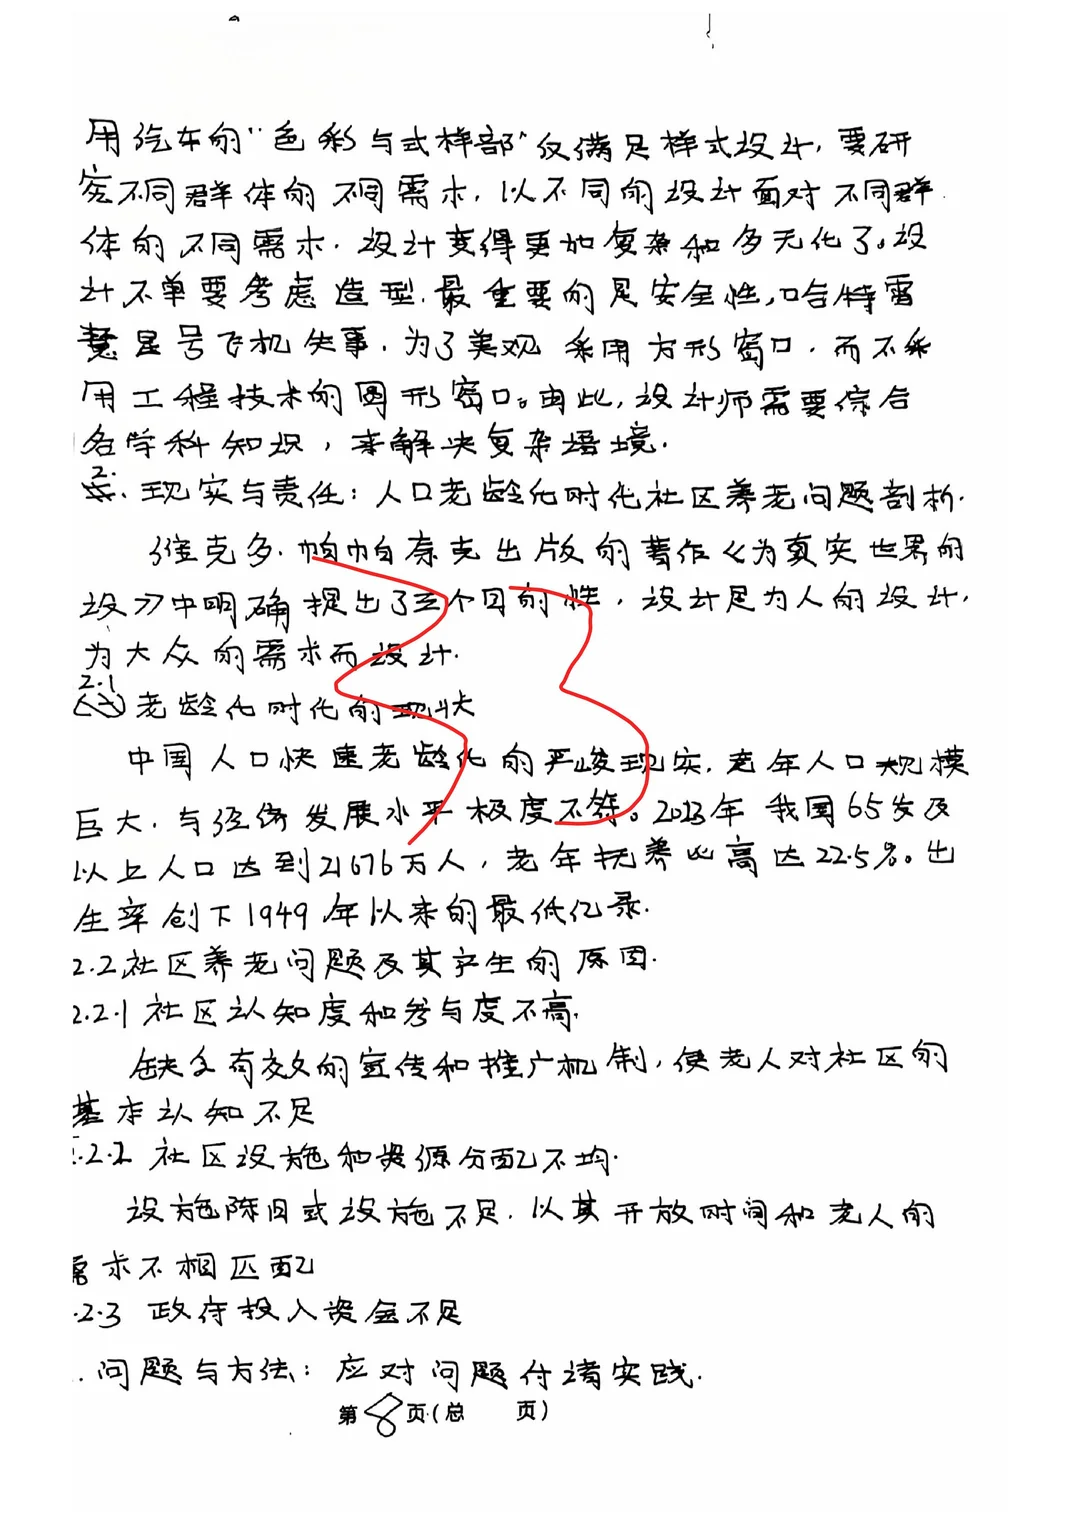 用汽车的“色彩与式样部”仅满足样式设计，要研
究不同群体的不同需求，以不同的设计面对不同群
体的不同需求，设计变得更加复杂和多元化了。设
计不单要考虑造型，最重要的是安全性，哈特雷
慧星号飞机失事，为了美观采用方形窗口，而不采
用工程技术的圆形窗口。由此，设计师需要综合
各学科知识，来解决复杂语境.
2. 现实与责任：人口老龄化时代社区养老问题剖析.
维克多·帕帕奈克出版的著作《为真实世界的
设》中明确提出了三个目的性，设计是为人的设计，
为大众的需求而设计.
2.1 老龄化时代的现状
中国人口快速老龄化的严峻现实，老年人口规模
巨大，与经济发展水平极度不符。2023年我国65岁及
以上人口达到21676万人，老年抚养比高达22.5%。出
生率创下1949年以来的最低亿录.
2.2社区养老问题及其产生的原因.
2.2.1社区认知度和参与度不高.
缺乏有效的宣传和推广机制，使老人对社区的
基本认知不足
.2.2 社区设施和资源分配不均.
设施陈旧或设施不足，以其开放时间和老人的
需求不相匹配
.2.3 政府投入资金不足
. 问题与方法：应对问题付诸实践.
第8页(总 页)
33